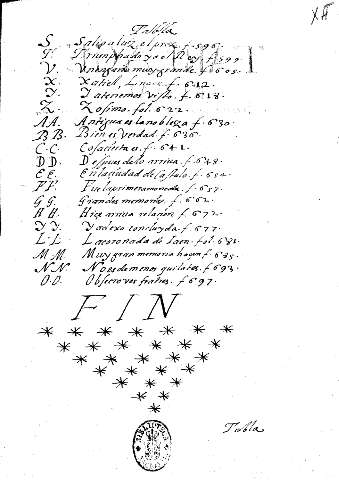 Tabla
S. Salio a luz el prez f. 596.
T. Triunphado ya el Rey f. 599
V. muy grande f. 605.
X. Xatiel, f. 612.
Y. Ya tenemos visto f. 618.
Z. Zosimo. fol. 622.
AA. Antigua es la nobleza f. 630.
BB. Bien es verdad. f. 636.
C.C. Cosa cierta es. f. 642.
DD. Despues de lo arriva. f. 648.
EE. En la ciudad de Castulo. f. 652.
FF. Fue la primera moneda. f. 657.
GG. Grandes memorias. f. 662.
HH. Hize arriva relacion. f. 672.
YY. Y a dexo concluyda. f. 677.
LL. La coronada de Iaen. fol. 681.
MM. Muy gran memoria hazen f. 685.
NN. No es de menos quilates. f. 693.
OO. Obsecro vos fratres. f. 697.
FIN
Tabla